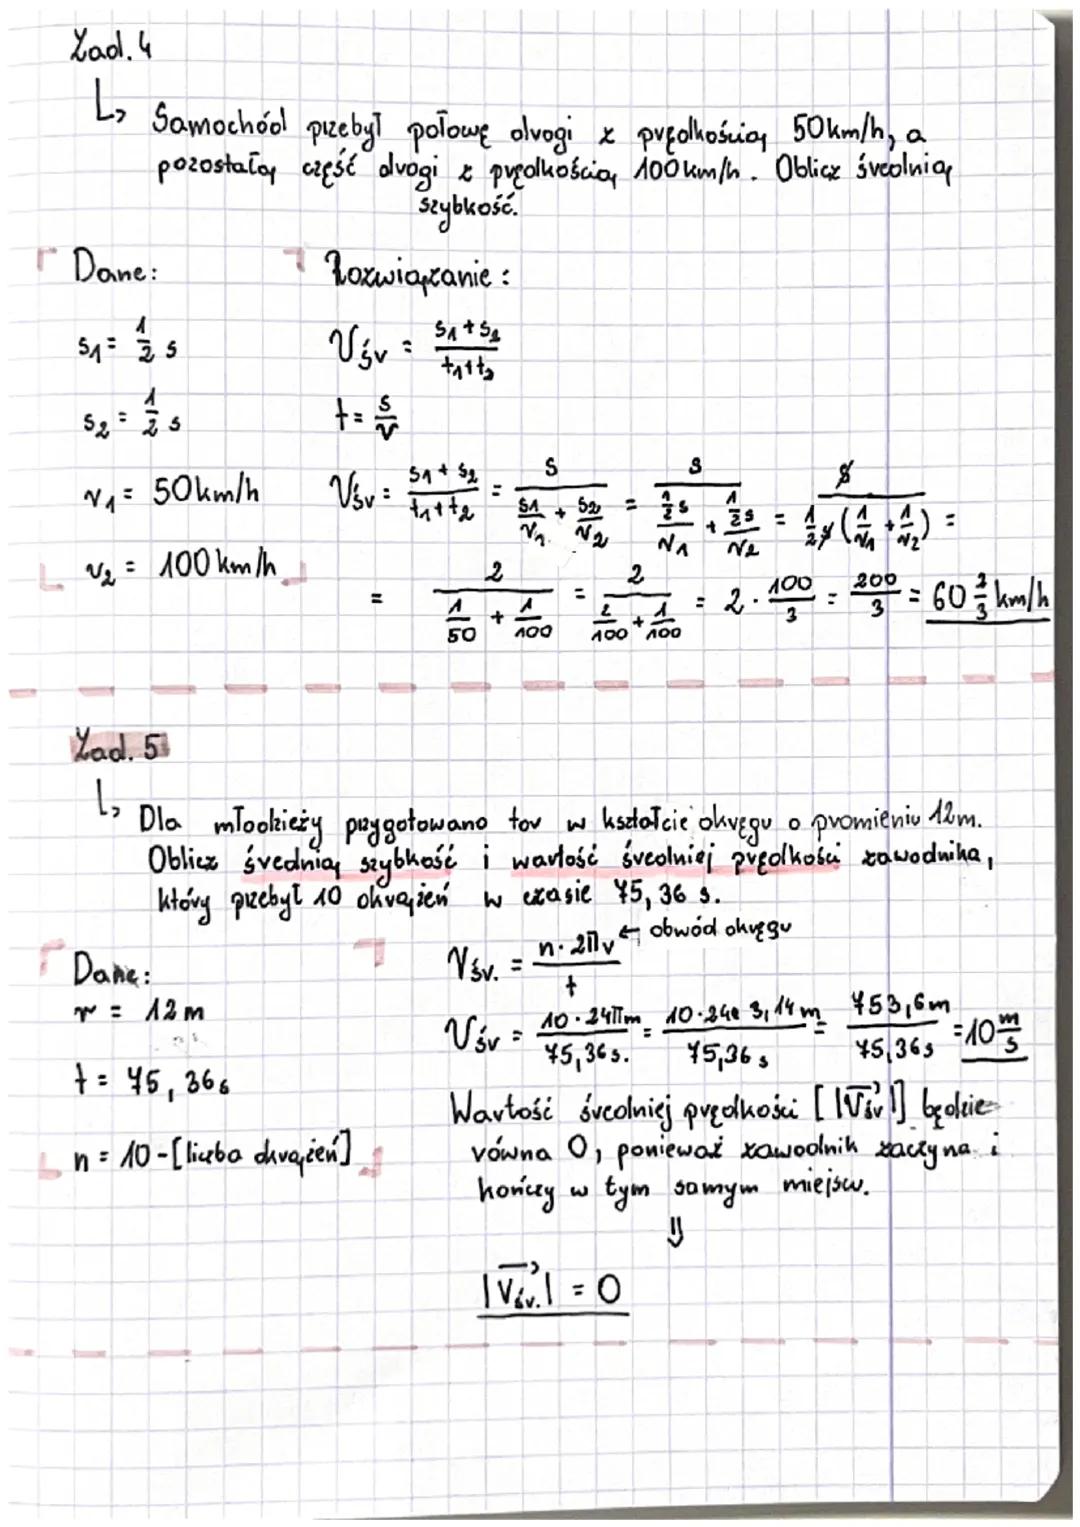 Zad. 4
↳ Samochód przebył połowę drogi z prędkością 50km/h, a
pozostałą część drogi z prędkością 100km/h. Oblicz średnią
szybkość.
Dane:
s₁ = 1/2 s
s₂ = 1/2 s
v₁ = 50km/h
v₂ = 100km/h
Rozwiązanie:
Vśr = (s₁+s₂)/(t₁+t₂)
t = s/v
Vśr = (s₁+s₂)/(t₁+t₂) = s/(s₁/v₁ + s₂/v₂) = s/((1/2 s)/v₁ + (1/2 s)/v₂) = s/(1/2 s (1/v₁ + 1/v₂)) =
= 2/(1/50 + 1/100) = 2/(2/100 + 1/100) = 2 · 100/3 = 200/3 = 60 2/3 km/h
Zad. 5
↳ Dla młodzieży przygotowano tor w kształcie okręgu o promieniu 12m.
Oblicz średnią szybkość i wartość średniej prędkości zawodnika,
który przebył 10 okrążeń w czasie 75,36 s.
Dane:
r = 12m
t = 75,36s
n = 10 - [liczba okrążeń]
Vśr. = (n · 2πr)/t ← obwód okręgu
Vśr = (10 · 24πm)/(75,36s.) = (10 · 24 · 3,14m)/(75,36s) = (753,6m)/(75,36s) = 10 m/s
Wartość średniej prędkości [|V⃗śr|] będzie
równa 0, ponieważ zawodnik zaczyna i
kończy w tym samym miejscu.
⇓
|V⃗śr.| = 0